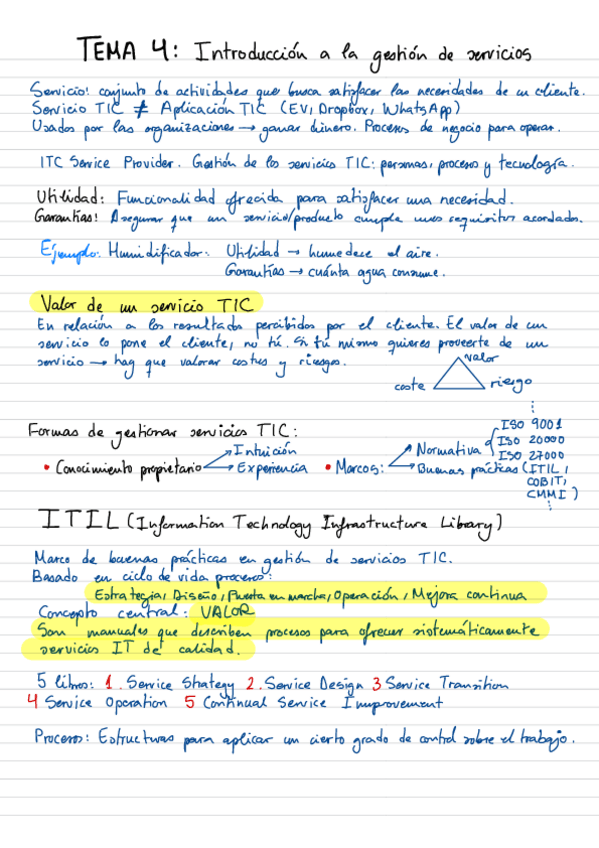 TEMA 4: Introducción a la gestión de servicios
Servicio: conjunto de actividades que busca satisfacer las necesidades de un cliente.
Servicio TIC ≠ Aplicación TIC (EV, Dropbox, WhatsApp)
Usados por las organizaciones → ganar dinero. Procesos de negocio para operar.
ITC Service Provider. Gestión de los servicios TIC: personas, procesos y tecnología.
Utilidad: Funcionalidad ofrecida para satisfacer una necesidad.
Garantías: Asegurar que un servicio/producto cumple unos requisitos acordados.
Ejemplo: Humidificador: Utilidad → humedece el aire.
Garantías → cuánta agua consume.
Valor de un servicio TIC
En relación a los resultados percibidos por el cliente. El valor de un
servicio lo pone el cliente, no tú. Si tú mismo quieres proveerte de un
servicio → hay que valorar costes y riesgos.
valor
coste riesgo
Formas de gestionar servicios TIC:
• Conocimiento propietario → Intuición
→ Experiencia
• Marcos: → Normativa
ISO 9001
ISO 20000
ISO 27000
→ Buenas prácticas (ITIL,
COBIT,
CMMI)
ITIL (Information Technology Infrastructure Library)
Marco de buenas prácticas en gestión de servicios TIC.
Basado en ciclo de vida procesos:
Estrategia, Diseño, Puesta en marcha, Operación, Mejora continua
Concepto central: VALOR
Son manuales que describen procesos para ofrecer sistemáticamente
servicios IT de calidad.
5 libros: 1. Service Strategy 2. Service Design 3 Service Transition
4 Service Operation 5 Continual Service Improvement
Procesos: Estructuras para aplicar un cierto grado de control sobre el trabajo.